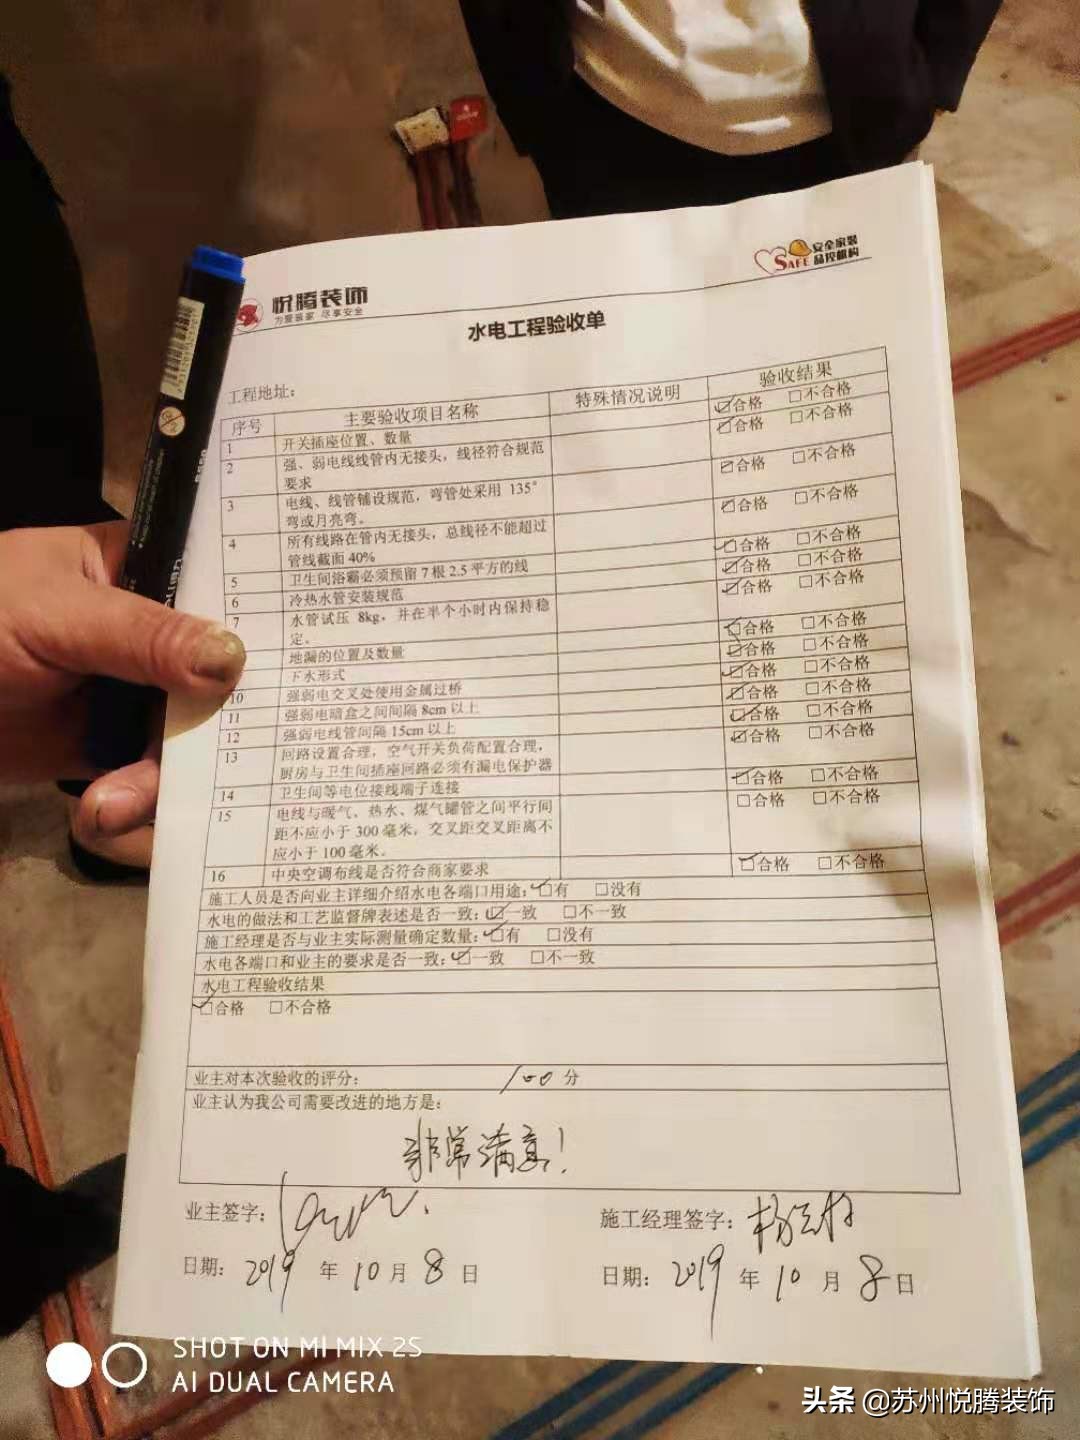 悦腾装饰
为爱装家 尽享安全
SAFE 安全家装
品控机构
水电工程验收单
工程地址：
序号 主要验收项目名称 特殊情况说明 验收结果
1 开关插座位置、数量 ☑合格 □不合格
☑合格 □不合格
2 强、弱电线线管内无接头，线径符合规范
要求 ☑合格 □不合格
3 电线、线管铺设规范，弯管处采用 135°
弯或月亮弯。 ☑合格 □不合格
4 所有线路在管内无接头，总线径不能超过
管线截面 40% ☑合格 □不合格
5 卫生间浴霸必须预留 7 根 2.5 平方的线 ☑合格 □不合格
6 冷热水管安装规范 ☑合格 □不合格
7 水管试压 8kg，并在半个小时内保持稳
定。 ☑合格 □不合格
地漏的位置及数量 ☑合格 □不合格
下水形式 ☑合格 □不合格
10 强弱电交叉处使用金属过桥 ☑合格 □不合格
11 强弱电暗盒之间间隔 8cm 以上 ☑合格 □不合格
12 强弱电线管间隔 15cm 以上 ☑合格 □不合格
13 回路设置合理，空气开关负荷配置合理，
厨房与卫生间插座回路必须有漏电保护器
14 卫生间等电位接线端子连接 ☑合格 □不合格
15 电线与暖气、热水、煤气罐管之间平行间 □合格 □不合格
距不应小于 300 毫米，交叉距交叉距离不
应小于 100 毫米。
16 中央空调布线是否符合商家要求 ☑合格 □不合格
施工人员是否向业主详细介绍水电各端口用途：☑有 □没有
水电的做法和工艺监督牌表述是否一致：☑一致 □不一致
施工经理是否与业主实际测量确定数量：☑有 □没有
水电各端口和业主的要求是否一致：☑一致 □不一致
水电工程验收结果
☑合格 □不合格
业主对本次验收的评分： 100 分
业主认为我公司需要改进的地方是：
非常满意！
业主签字： 施工经理签字：
日期： 2019 年 10 月 8 日 日期： 2019 年 10 月 8 日
SHOT ON MI MIX 2S
AI DUAL CAMERA
头条 @苏州悦腾装饰